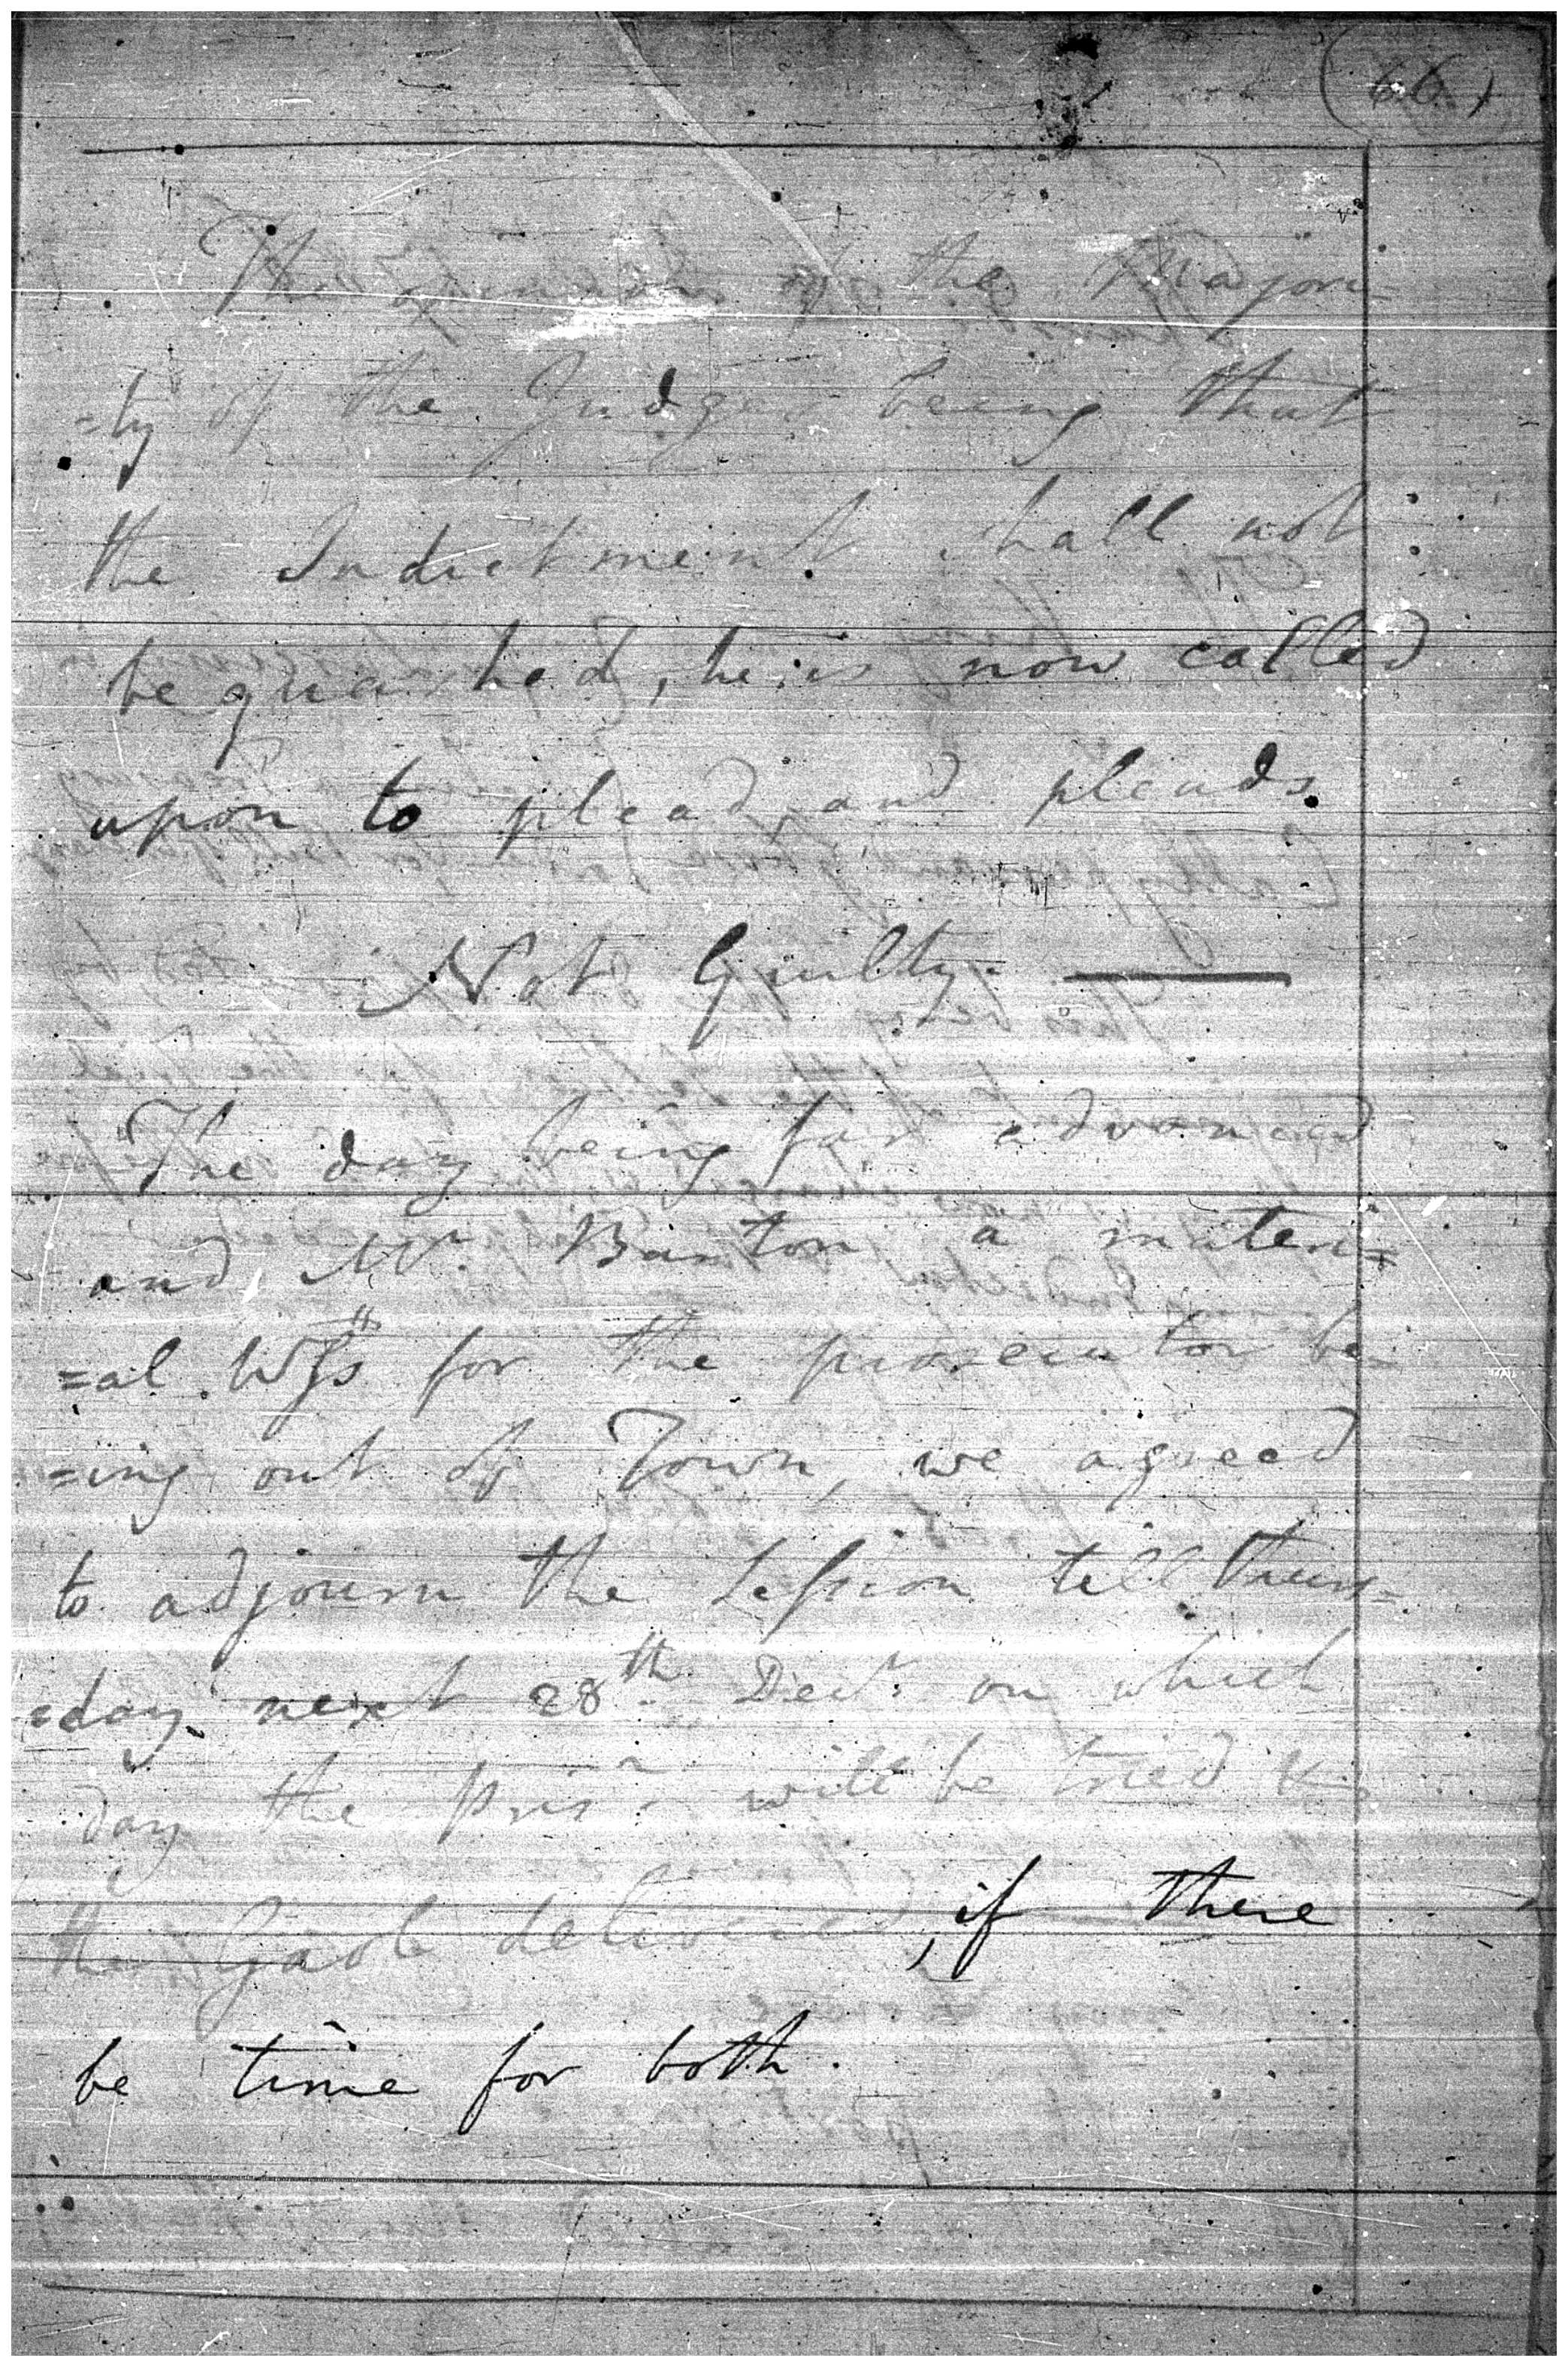 (66)
The opinion of the Majori=
=ty of the Judges being that
the Indictment shall not
be quashed, he is now called
upon to plead, and pleads.
Not Guilty. —
The day being far advanced
and Mr. Barton a materi=
=al Wſs for the prosecutor be=
=ing out of Town, we agreed
to adjourn the Seſsion till thurs=
=day next 28th. Decr. on which
day the Prisr. will be tried &
the Gaol delivered, if there
be time for both.